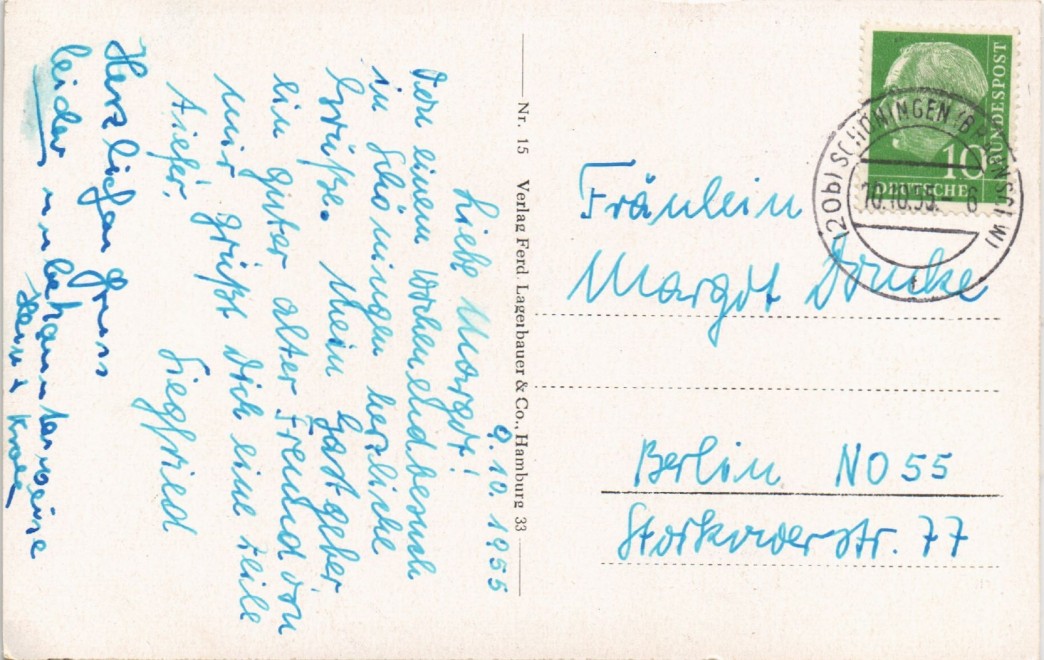 9. 10. 1955
Liebe Margot!
Von einem Wochenendbesuch
in Schöningen herzliche
Grüße. Mein Gastgeber,
ein guter alter Freund von
mir grüßt Dich eine Zeile
tiefer.
Siegfried
Herzlichen Gruss
leider unbekannterweise
Nr. 15 Verlag Ferd. Lagerbauer & Co., Hamburg 33
DEUTSCHE BUNDESPOST
10
(20b) SCHÖNINGEN (BRAUNSCHW)
10.10.55.- 6
Fräulein
Margot Doncke
Berlin NO 55
Storkowerstr. 77